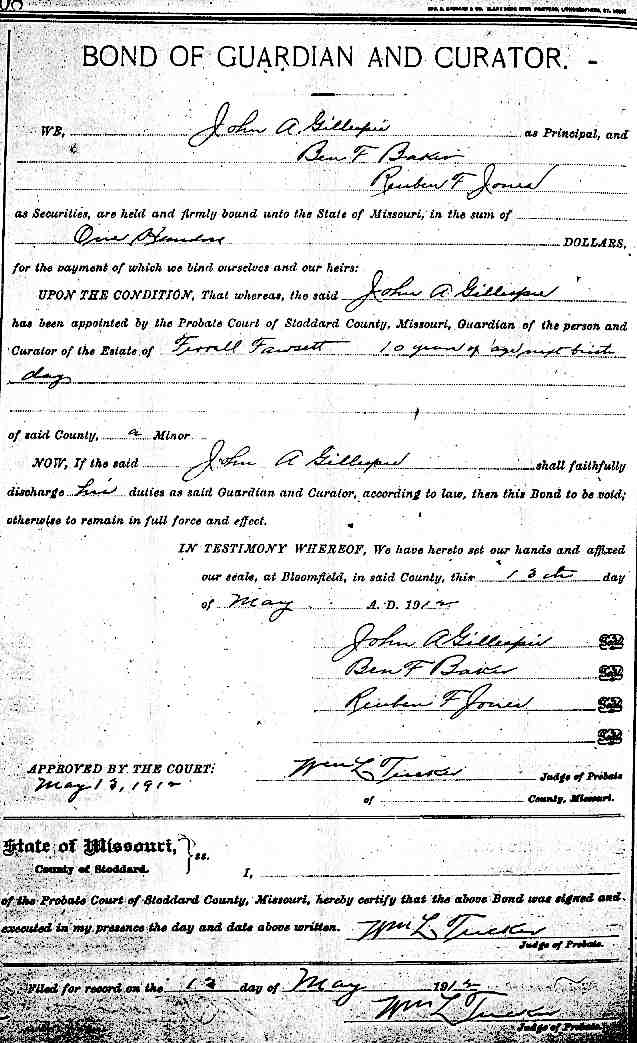 BOND OF GUARDIAN AND CURATOR.
WE, John A Gillespie as Principal, and
Ben F Baker
Reuben F Jones
as Securities, are held and firmly bound unto the State of Missouri, in the sum of
One Hundred DOLLARS,
for the payment of which we bind ourselves and our heirs:
UPON THE CONDITION, That whereas, the said John A Gillespie
has been appointed by the Probate Court of Stoddard County, Missouri, Guardian of the person and
Curator of the Estate of Ferrell Fawsett 10 years of age next birth
day
of said County, a Minor
NOW, If the said John A Gillespie shall faithfully
discharge his duties as said Guardian and Curator, according to law, then this Bond to be void;
otherwise to remain in full force and effect.
IN TESTIMONY WHEREOF, We have hereto set our hands and affixed
our seals, at Bloomfield, in said County, this 13th day
of May A. D. 1912
John A Gillespie Seal
Ben F Baker Seal
Reuben F Jones Seal
Seal
APPROVED BY THE COURT: Wm L Tucker Judge of Probate
May 13, 1912
of County, Missouri.
State of Missouri, } ss.
County of Stoddard.
I,
of the Probate Court of Stoddard County, Missouri, hereby certify that the above Bond was signed and
executed in my presence the day and date above written. Wm L Tucker
Judge of Probate.
Filed for record on the 13 day of May 1912
Wm L Tucker
Judge of Probate.